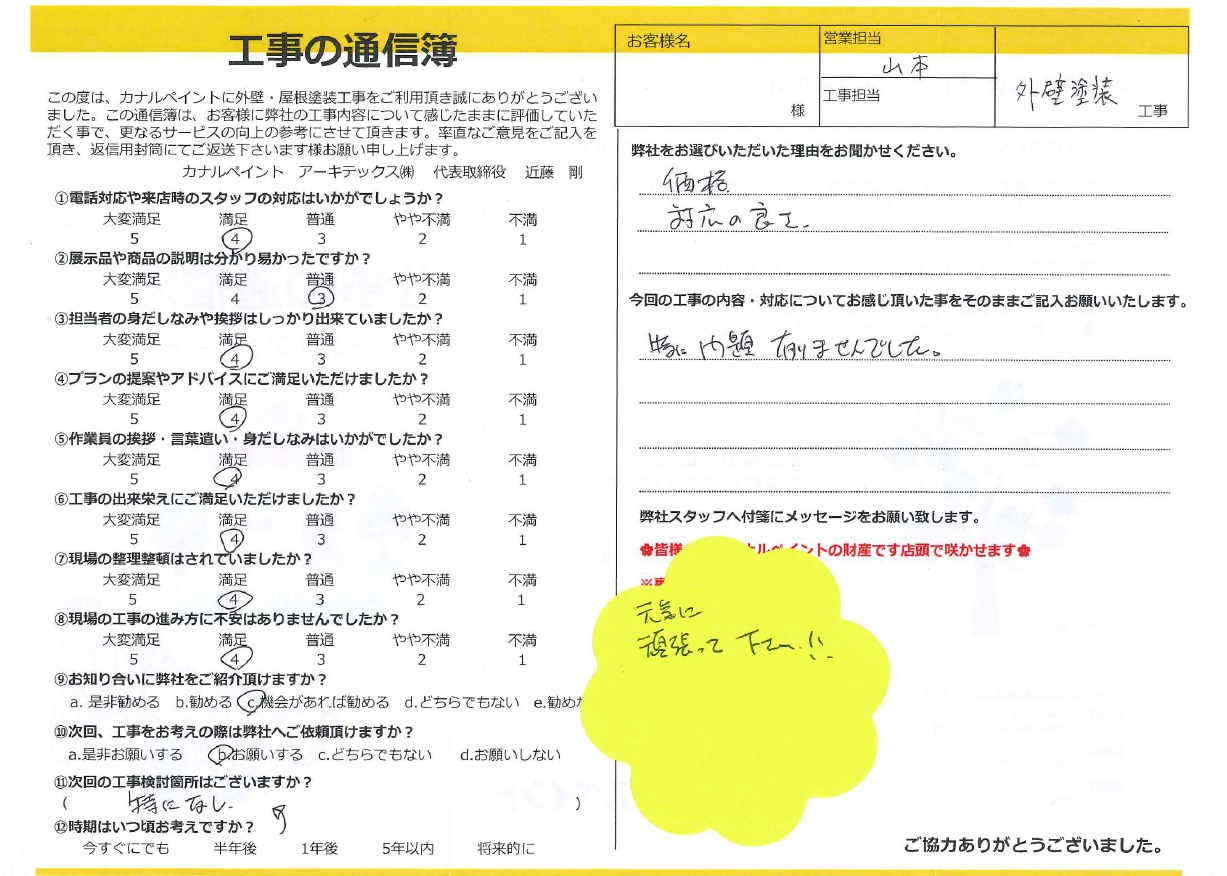 工事の通信簿
この度は、カナルペイントに外壁・屋根塗装工事をご利用頂き誠にありがとうござい
ました。この通信簿は、お客様に弊社の工事内容について感じたままに評価していた
だく事で、更なるサービスの向上の参考にさせて頂きます。率直なご意見をご記入を
頂き、返信用封筒にてご返送下さいます様お願い申し上げます。
カナルペイント　アーキテックス㈱　代表取締役　近藤　剛
①電話対応や来店時のスタッフの対応はいかがでしょうか？
大変満足 満足 普通 やや不満 不満
5 4 3 2 1
②展示品や商品の説明は分かり易かったですか？
大変満足 満足 普通 やや不満 不満
5 4 3 2 1
③担当者の身だしなみや挨拶はしっかり出来ていましたか？
大変満足 満足 普通 やや不満 不満
5 4 3 2 1
④プランの提案やアドバイスにご満足いただけましたか？
大変満足 満足 普通 やや不満 不満
5 4 3 2 1
⑤作業員の挨拶・言葉遣い・身だしなみはいかがでしたか？
大変満足 満足 普通 やや不満 不満
5 4 3 2 1
⑥工事の出来栄えにご満足いただけましたか？
大変満足 満足 普通 やや不満 不満
5 4 3 2 1
⑦現場の整理整頓はされていましたか？
大変満足 満足 普通 やや不満 不満
5 4 3 2 1
⑧現場の工事の進み方に不安はありませんでしたか？
大変満足 満足 普通 やや不満 不満
5 4 3 2 1
⑨お知り合いに弊社をご紹介頂けますか？
a. 是非勧める b.勧める c.機会があれば勧める d.どちらでもない e.勧めた
⑩次回、工事をお考えの際は弊社へご依頼頂けますか？
a.是非お願いする b.お願いする c.どちらでもない d.お願いしない
⑪次回の工事検討箇所はございますか？
( 特になし. )
⑫時期はいつ頃お考えですか？
今すぐにでも 半年後 1年後 5年以内 将来的に
お客様名
様
営業担当
山本
工事担当
外壁塗装
工事
弊社をお選びいただいた理由をお聞かせください。
価格
対応の良さ.
今回の工事の内容・対応についてお感じ頂いた事をそのままご記入お願いいたします。
特に問題有りませんでした。
弊社スタッフへ付箋にメッセージをお願い致します。
✿皆様 ナルペイントの財産です店頭で咲かせます✿
元気に
頑張って下さい!!
ご協力ありがとうございました。